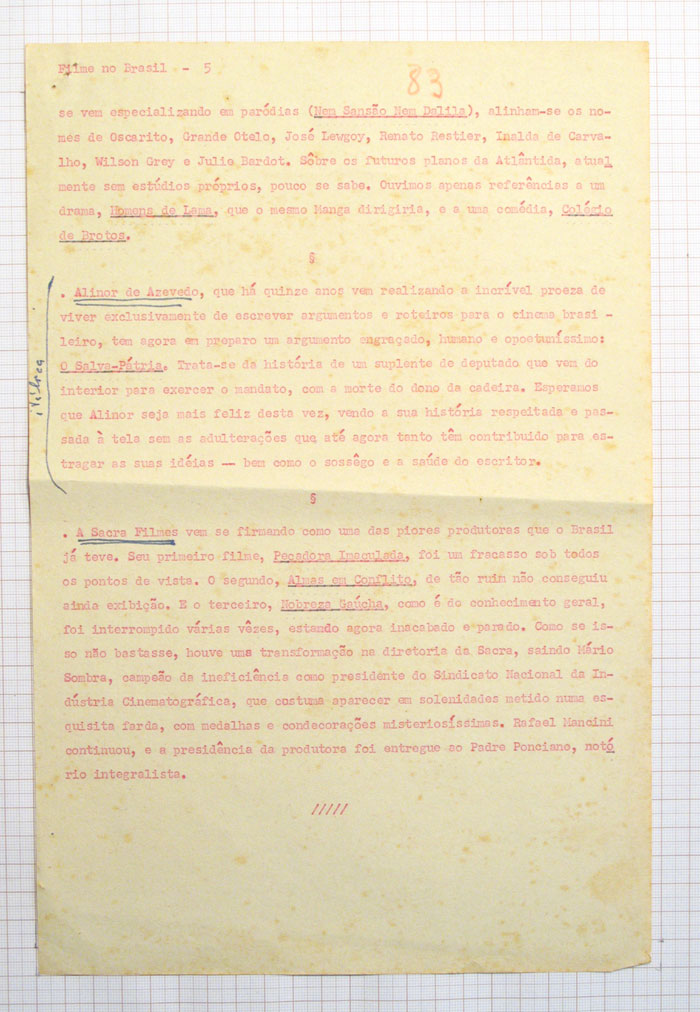 Filme no Brasil - 5
83
se vem especializando em paródias (Nem Sansão Nem Dalila), alinham-se os no-
mes de Oscarito, Grande Otelo, José Lewgoy, Renato Restier, Inalda de Carva-
lho, Wilson Grey e Julie Bardot. Sôbre os futuros planos da Atlântida, atual
mente sem estúdios próprios, pouco se sabe. Ouvimos apenas referências a um
drama, Homens de Lama, que o mesmo Manga dirigiria, e a uma comédia, Colégio
de Brotos.
§
. Alinor de Azevedo, que há quinze anos vem realizando a incrível proeza de
viver exclusivamente de escrever argumentos e roteiros para o cinema brasi -
leiro, tem agora em preparo um argumento engraçado, humano e opoetuníssimo:
O Salva-Pátria. Trata-se da história de um suplente de deputado que vem do
interior para exercer o mandato, com a morte do dono da cadeira. Esperamos
que Alinor seja mais feliz desta vez, vendo a sua história respeitada e pas-
sada à tela sem as adulterações que até agora tanto têm contribuido para es-
tragar as suas idéias — bem como o sossêgo e a saúde do escritor.
§
. A Sacra Filmes vem se firmando como uma das piores produtoras que o Brasil
já teve. Seu primeiro filme, Pecadora Imaculada, foi um fracasso sob todos
os pontos de vista. O segundo, Almas em Conflito, de tão ruim não conseguiu
ainda exibição. E o terceiro, Nobreza Gaúcha, como é do conhecimento geral,
foi interrompido várias vêzes, estando agora inacabado e parado. Como se is-
so não bastasse, houve uma transformação na diretoria da Sacra, saindo Mário
Sombra, campeão da ineficiência como presidente do Sindicato Nacional da In-
dústria Cinematográfica, que costuma aparecer em solenidades metido numa es-
quisita farda, com medalhas e condecorações misteriosíssimas. Rafael Mancini
continuou, e a presidência da produtora foi entregue ao Padre Ponciano, notó
rio integralista.
/////